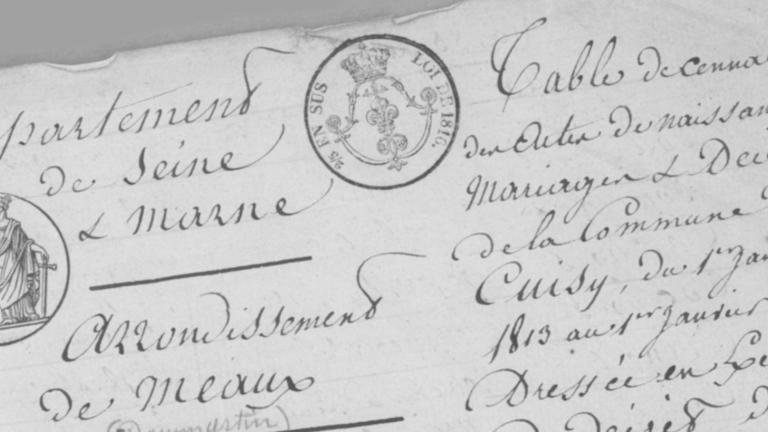 partement
de Seine
& Marne
Arrondissement
de Meaux
(Dammartin)
2/5 EN SUS
LOI DE 1816.
Table decenna
des Actes de naissan
Mariages & Déc
de la Commune
Cuisy, du 1er Jan
1813 au 1er Janvier
Dressée en